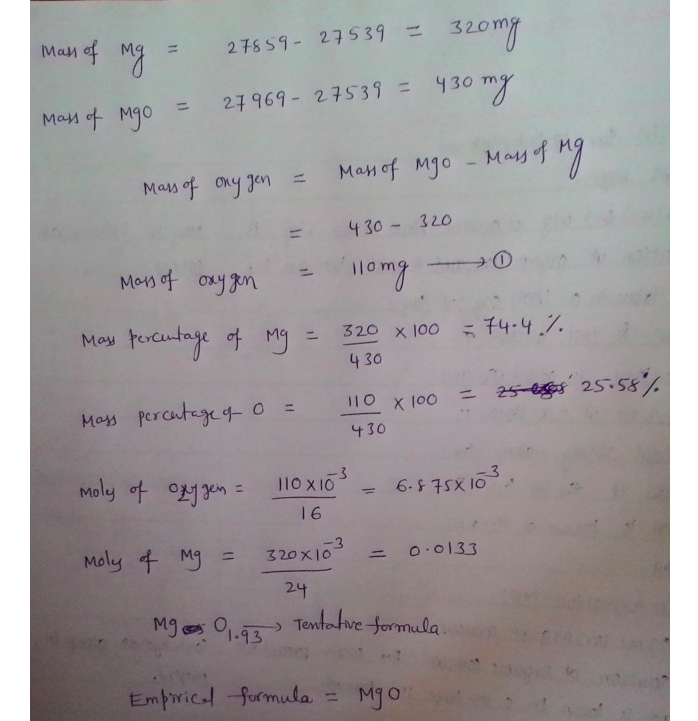 Mass of Mg = 27859 - 27539 = 320mg
Mass of MgO = 27969 - 27539 = 430 mg
Mass of oxygen = Mass of MgO - Mass of Mg
= 430 - 320
Mass of oxygen = 110mg → ①
Mass percentage of Mg = 320/430 × 100 = 74.4 %
Mass percentage of O = 110/430 × 100 = 25.58%
Moles of Oxygen = 110×10⁻³/16 = 6.875×10⁻³
Moles of Mg = 320×10⁻³/24 = 0.0133
Mg O₁.₉₃ → Tentative formula.
Empirical formula = MgO